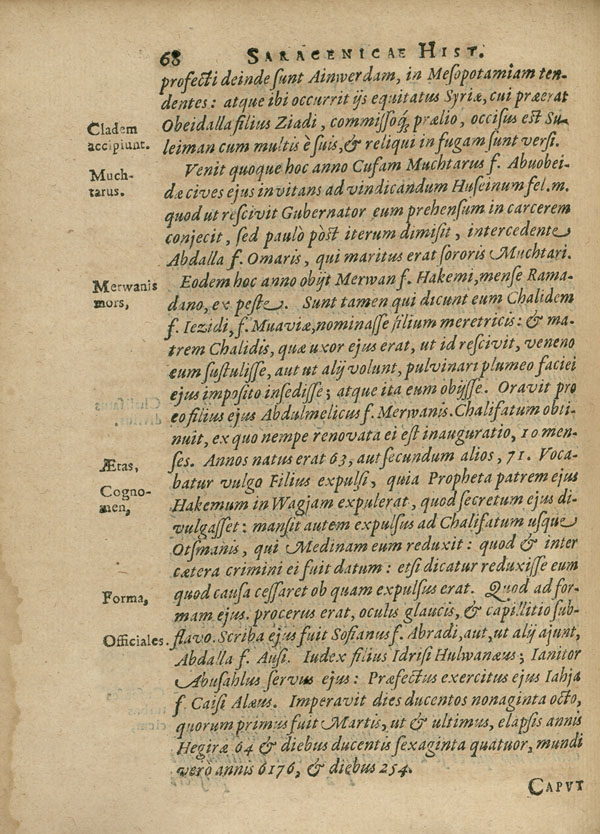 68 SARACENICAE HIST.
profecti deinde sunt Ainwerdam, in Mesopotamiam ten-
dentes: atque ibi occurrit ijs equitatus Syriæ, cui præerat
Cladem
accipiunt.
Obeidalla filius Ziadi, commissoq́; prælio, occisus est Su-
leiman cum multis è suis, & reliqui in fugam sunt versi.
Much-
tarus.
Venit quoque hoc anno Cufam Muchtarus f. Abuobei-
dæ cives ejus invitans ad vindicandum Huseinum fel. m.
quod ut rescivit Gubernator eum prehensum in carcerem
conjecit, sed paulò pòst iterum dimisit, intercedente
Abdalla f. Omaris, qui maritus erat sororis Muchtari.
Merwanis
mors,
Eodem hoc anno obijt Merwan f. Hakemi, mense Rama-
dano, ex peste. Sunt tamen qui dicunt eum Chalidem
f. Iezidi, f. Muaviæ, nominasse filium meretricis: & ma-
trem Chalidis, quæ uxor ejus erat, ut id rescivit, veneno
eum sustulisse, aut ut alij volunt, pulvinari plumeo faciei
ejus imposito insedisse; atque ita eum obijsse. Oravit pro
eo filius ejus Abdulmelicus f. Merwanis. Chalifatum obti-
nuit, ex quo nempe renovata ei est inauguratio, 10 men-
Ætas,
ses. Annos natus erat 63, aut secundum alios, 71. Voca-
Cogno-
men,
batur vulgo Filius expulsi, quia Propheta patrem ejus
Hakemum in Wagjam expulerat, quod secretum ejus di-
vulgasset: mansit autem expulsus ad Chalifatum usque
Otsmanis, qui Medinam eum reduxit: quod & inter
cætera crimini ei fuit datum: etsi dicatur reduxisse eum
Forma,
quod causa cessaret ob quam expulsus erat. Quod ad for-
mam ejus. procerus erat, oculis glaucis, & capillitio sub-
Officiales.
flavo. Scriba ejus fuit Sofianus f. Abradi, aut, ut alij ajunt,
Abdalla f. Ausi. Iudex filius Idrisi Hulwanæus; Ianitor
Abusahlus servus ejus: Præfectus exercitus ejus Iahja
f. Caisi Alæus. Imperavit dies ducentos nonaginta octo,
quorum primus fuit Martis, ut & ultimus, elapsis annis
Hegiræ 64 & diebus ducentis sexaginta quatuor, mundi
vero annis 6176, & diebus 254.
CAPVT